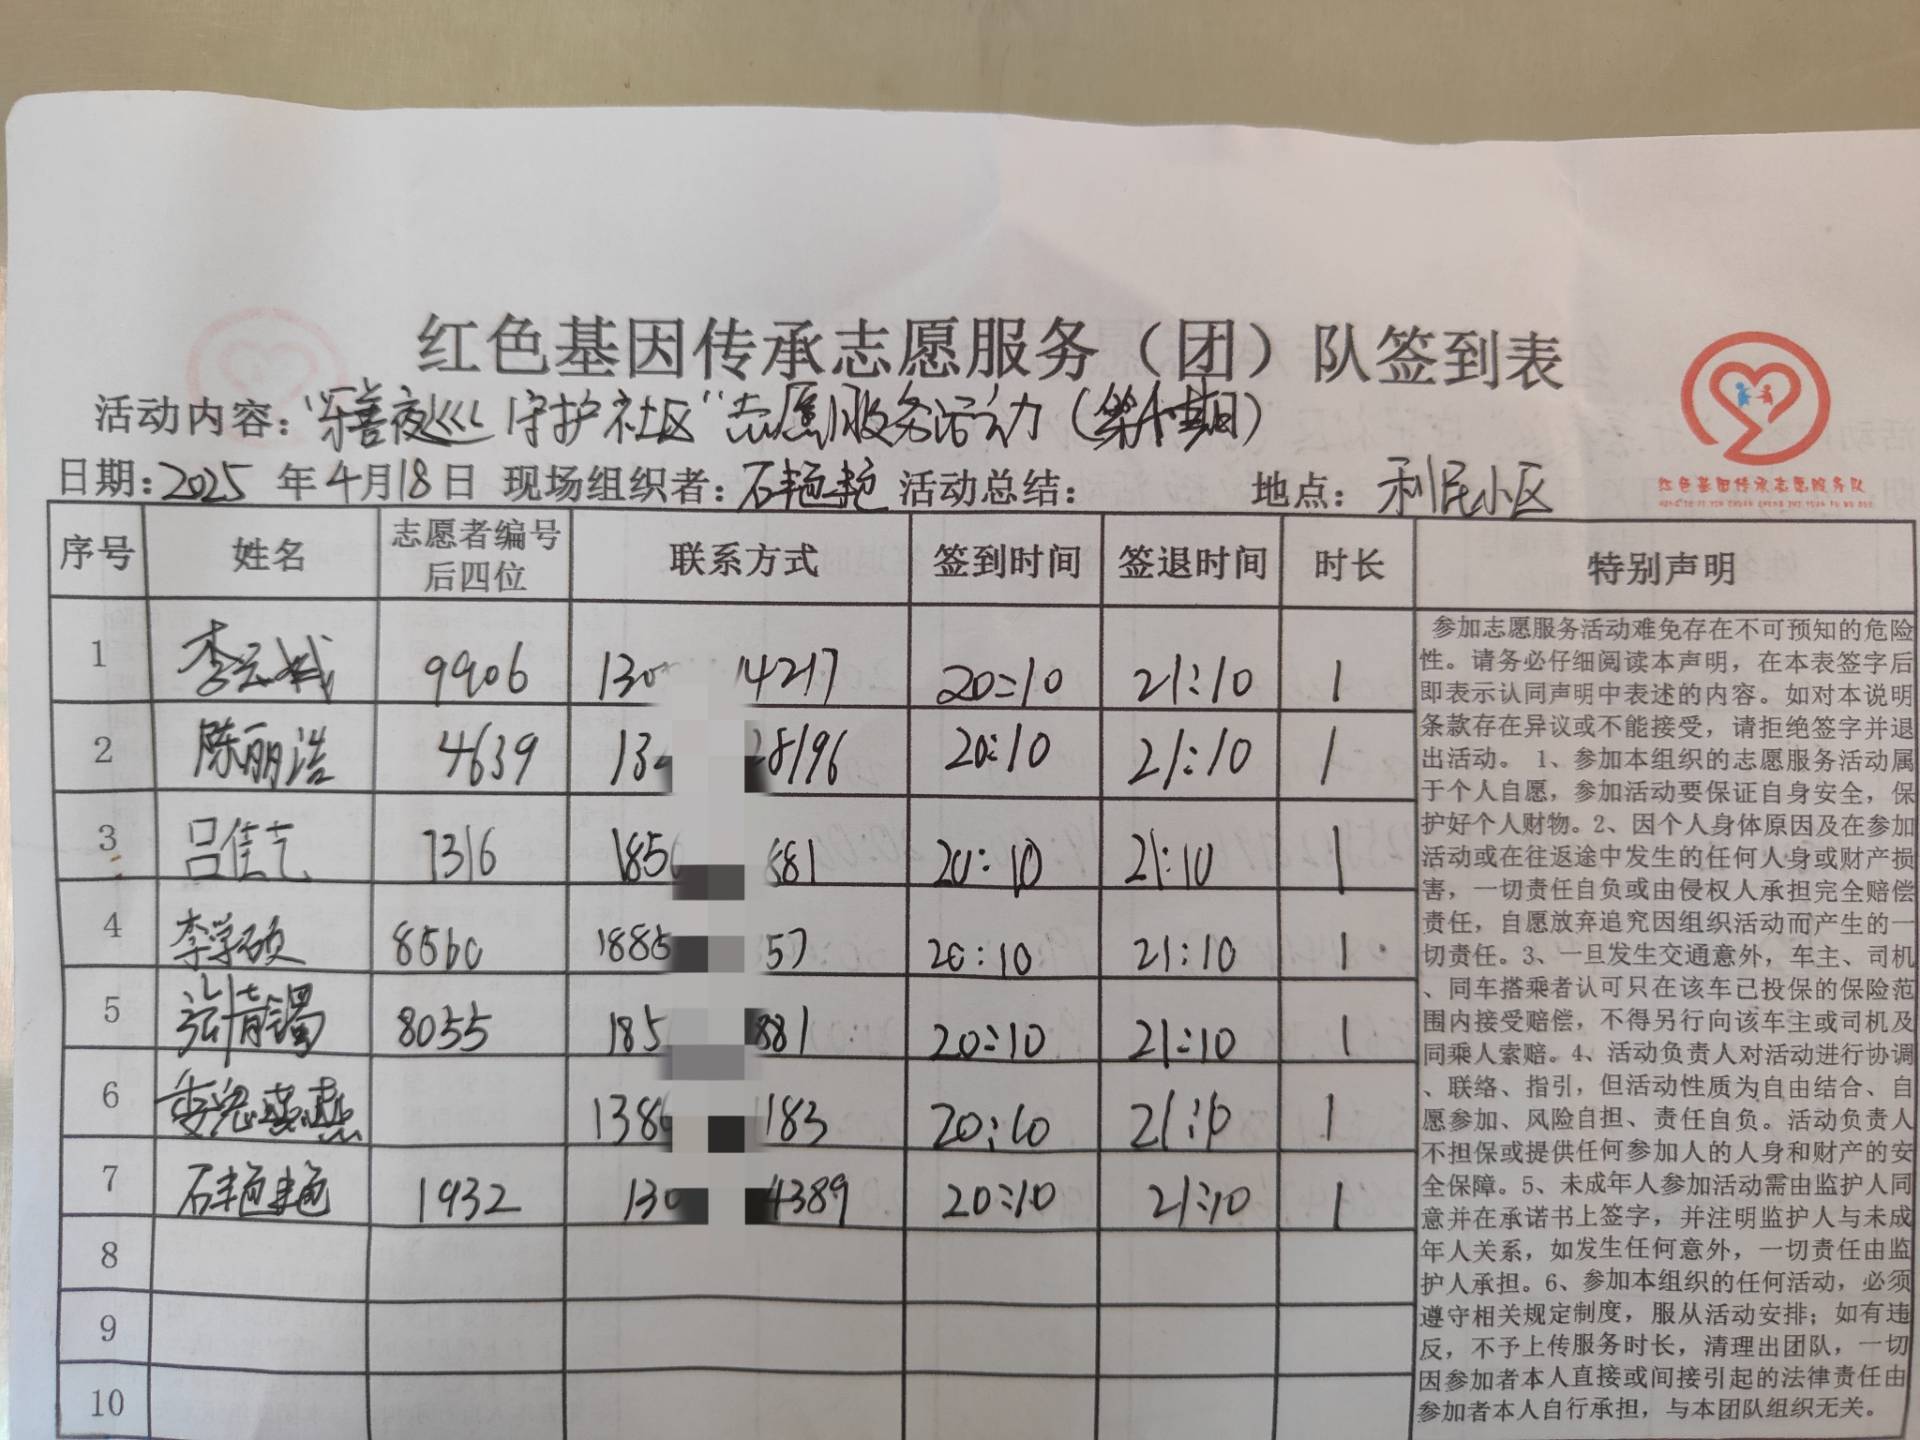 红色基因传承志愿服务（团）队签到表
活动内容：“乐善夜巡 守护社区”志愿服务活动（第十期）
日期：2025年4月18日 现场组织者：石艳艳 活动总结： 地点：利民小区
红色基因传承志愿服务队
序号 姓名 志愿者编号后四位 联系方式 签到时间 签退时间 时长 特别声明
1 李云斌 9906 130 14217 20:10 21:10 1
2 陈丽浩 4639 130 28196 20:10 21:10 1
3 吕佳 7316 1850 881 20:10 21:10 1
4 李学硕 8560 1885 57 20:10 21:10 1
5 张 8055 185 881 20:10 21:10 1
6 1380 183 20:10 21:10 1
7 石艳艳 1932 130 4389 20:10 21:10 1
8
9
10
参加志愿服务活动难免存在不可预知的危险
性。请务必仔细阅读本声明，在本表签字后
即表示认同声明中表述的内容。如对本说明
条款存在异议或不能接受，请拒绝签字并退
出活动。 1、参加本组织的志愿服务活动属
于个人自愿，参加活动要保证自身安全，保
护好个人财物。2、因个人身体原因及在参加
活动或在往返途中发生的任何人身或财产损
害，一切责任自负或由侵权人承担完全赔偿
责任，自愿放弃追究因组织活动而产生的一
切责任。3、一旦发生交通意外，车主、司机
、同车搭乘者认可只在该车已投保的保险范
围内接受赔偿，不得另行向该车主或司机及
同乘人索赔。4、活动负责人对活动进行协调
、联络、指引，但活动性质为自由结合、自
愿参加、风险自担、责任自负。活动负责人
不担保或提供任何参加人的人身和财产的安
全保障。5、未成年人参加活动需由监护人同
意并在承诺书上签字，并注明监护人与未成
年人关系，如发生任何意外，一切责任由监
护人承担。6、参加本组织的任何活动，必须
遵守相关规定制度，服从活动安排；如有违
反，不予上传服务时长，清理出团队，一切
因参加者本人直接或间接引起的法律责任由
参加者本人自行承担，与本团队组织无关。